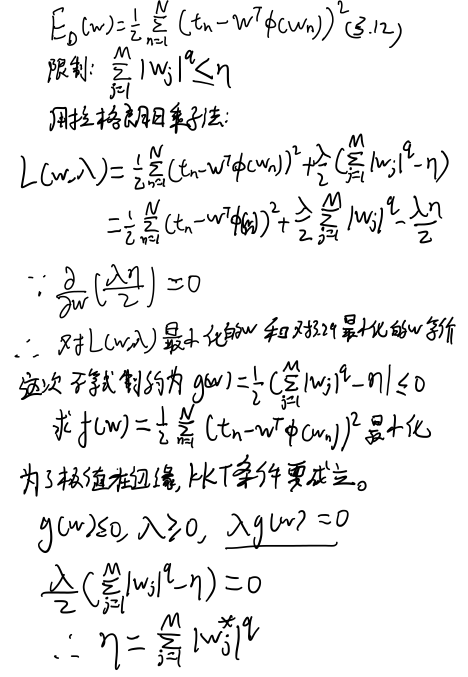 E_D(w)=\frac{1}{2}\sum_{n=1}^{N}(t_n-w^Tφ(w_n))^2(3.12)
限制:\sum_{j=1}^{M}|w_j|^q≤η
用拉格朗日乘子法:
L(w,λ)=\frac{1}{2}\sum_{n=1}^{N}(t_n-w^Tφ(w_n))^2+\frac{λ}{2}(\sum_{j=1}^{M}|w_j|^q-η)
=\frac{1}{2}\sum_{n=1}^{N}(t_n-w^Tφ())^2+\frac{λ}{2}\sum_{j=1}^{M}|w_j|^q-\frac{λη}{2}
∵\frac{∂}{∂w}(\frac{λη}{2})=0
∴对L(w,λ)最小化的w和对3.29最小化的w等价
这次不等式制约为g(w)=\frac{1}{2}(\sum_{j=1}^{M}|w_j|^q-η)≤0
求f(w)=\frac{1}{2}\sum_{n=1}^{N}(t_n-w^Tφ(w_n))^2最小化
为了极值在边缘,KKT条件要成立。
g(w)≤0,λ≥0,λg(w)=0
\frac{λ}{2}(\sum_{j=1}^{M}|w_j|^q-η)=0
∴η=\sum_{j=1}^{M}|w_j^*|^q